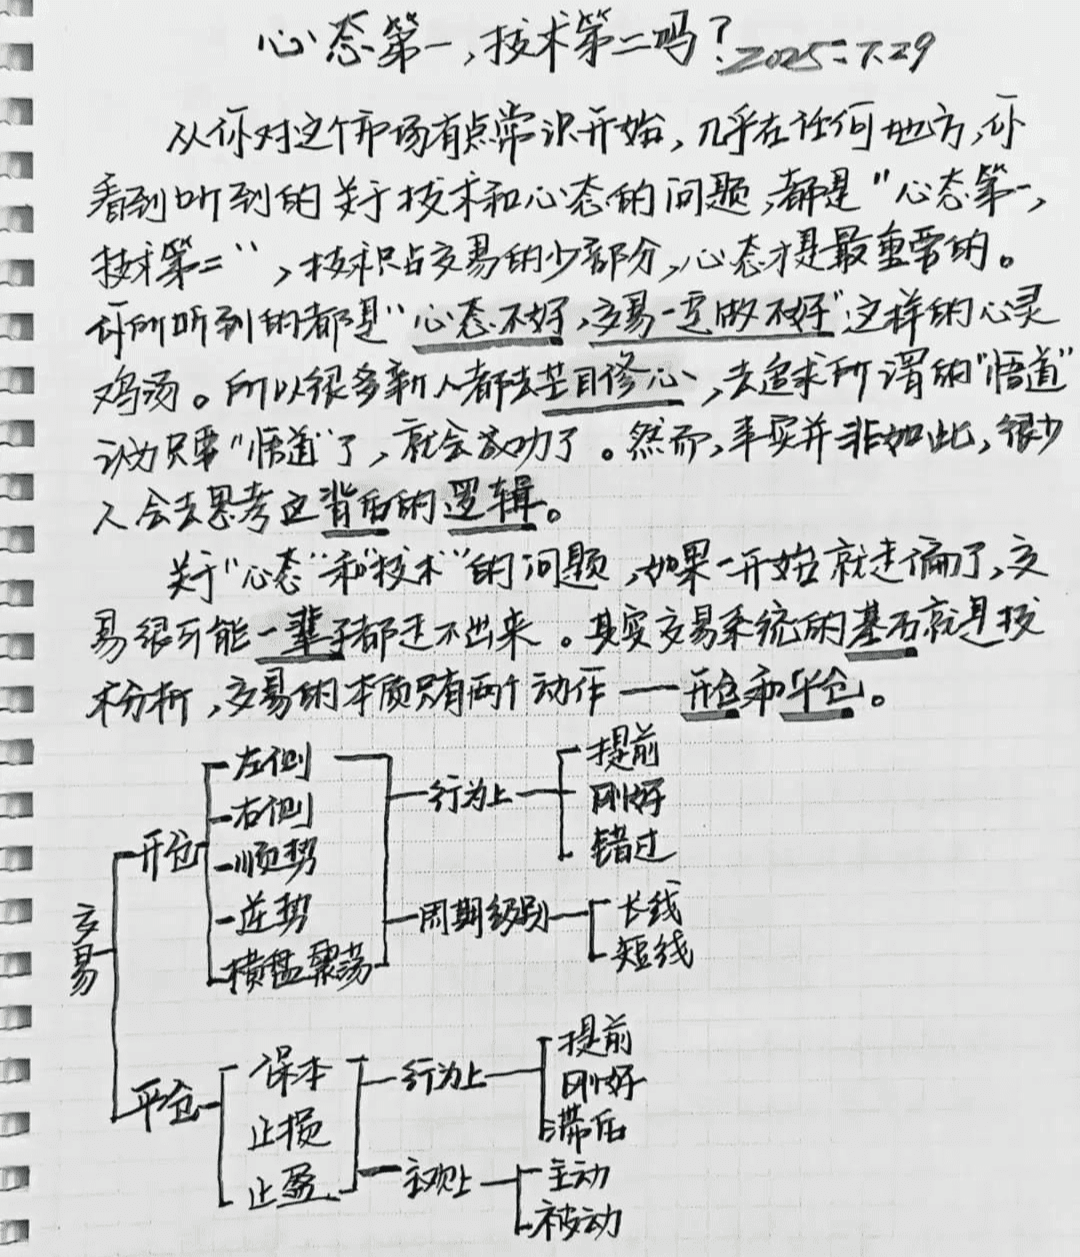 心态第一,技术第二吗? 2025:7.29
从你对这个市场有点常识开始,几乎在任何地方,你
看到听到的关于技术和心态的问题,都是"心态第一,
技术第二",技术只占交易的少部分,心态才是最重要的。
你所听到的都是"心态不好,交易一定做不好"这样的心灵
鸡汤。所以很多新人都去盲目修心,去追求所谓的"悟道"
认为只要"悟道"了,就会成功了。然而,事实并非如此,很少
人会去思考这背后的逻辑。
关于"心态"和"技术"的问题,如果一开始就走偏了,交
易很可能一辈子都走不出来。其实交易系统的基石就是技
术分析,交易的本质只有两个动作——开仓和平仓。
交易
开仓
左侧
右侧
顺势
逆势
横盘震荡
行为上
提前
刚好
错过
周期级别
长线
短线
平仓
保本
止损
止盈
行为上
提前
刚好
滞后
主观上
主动
被动